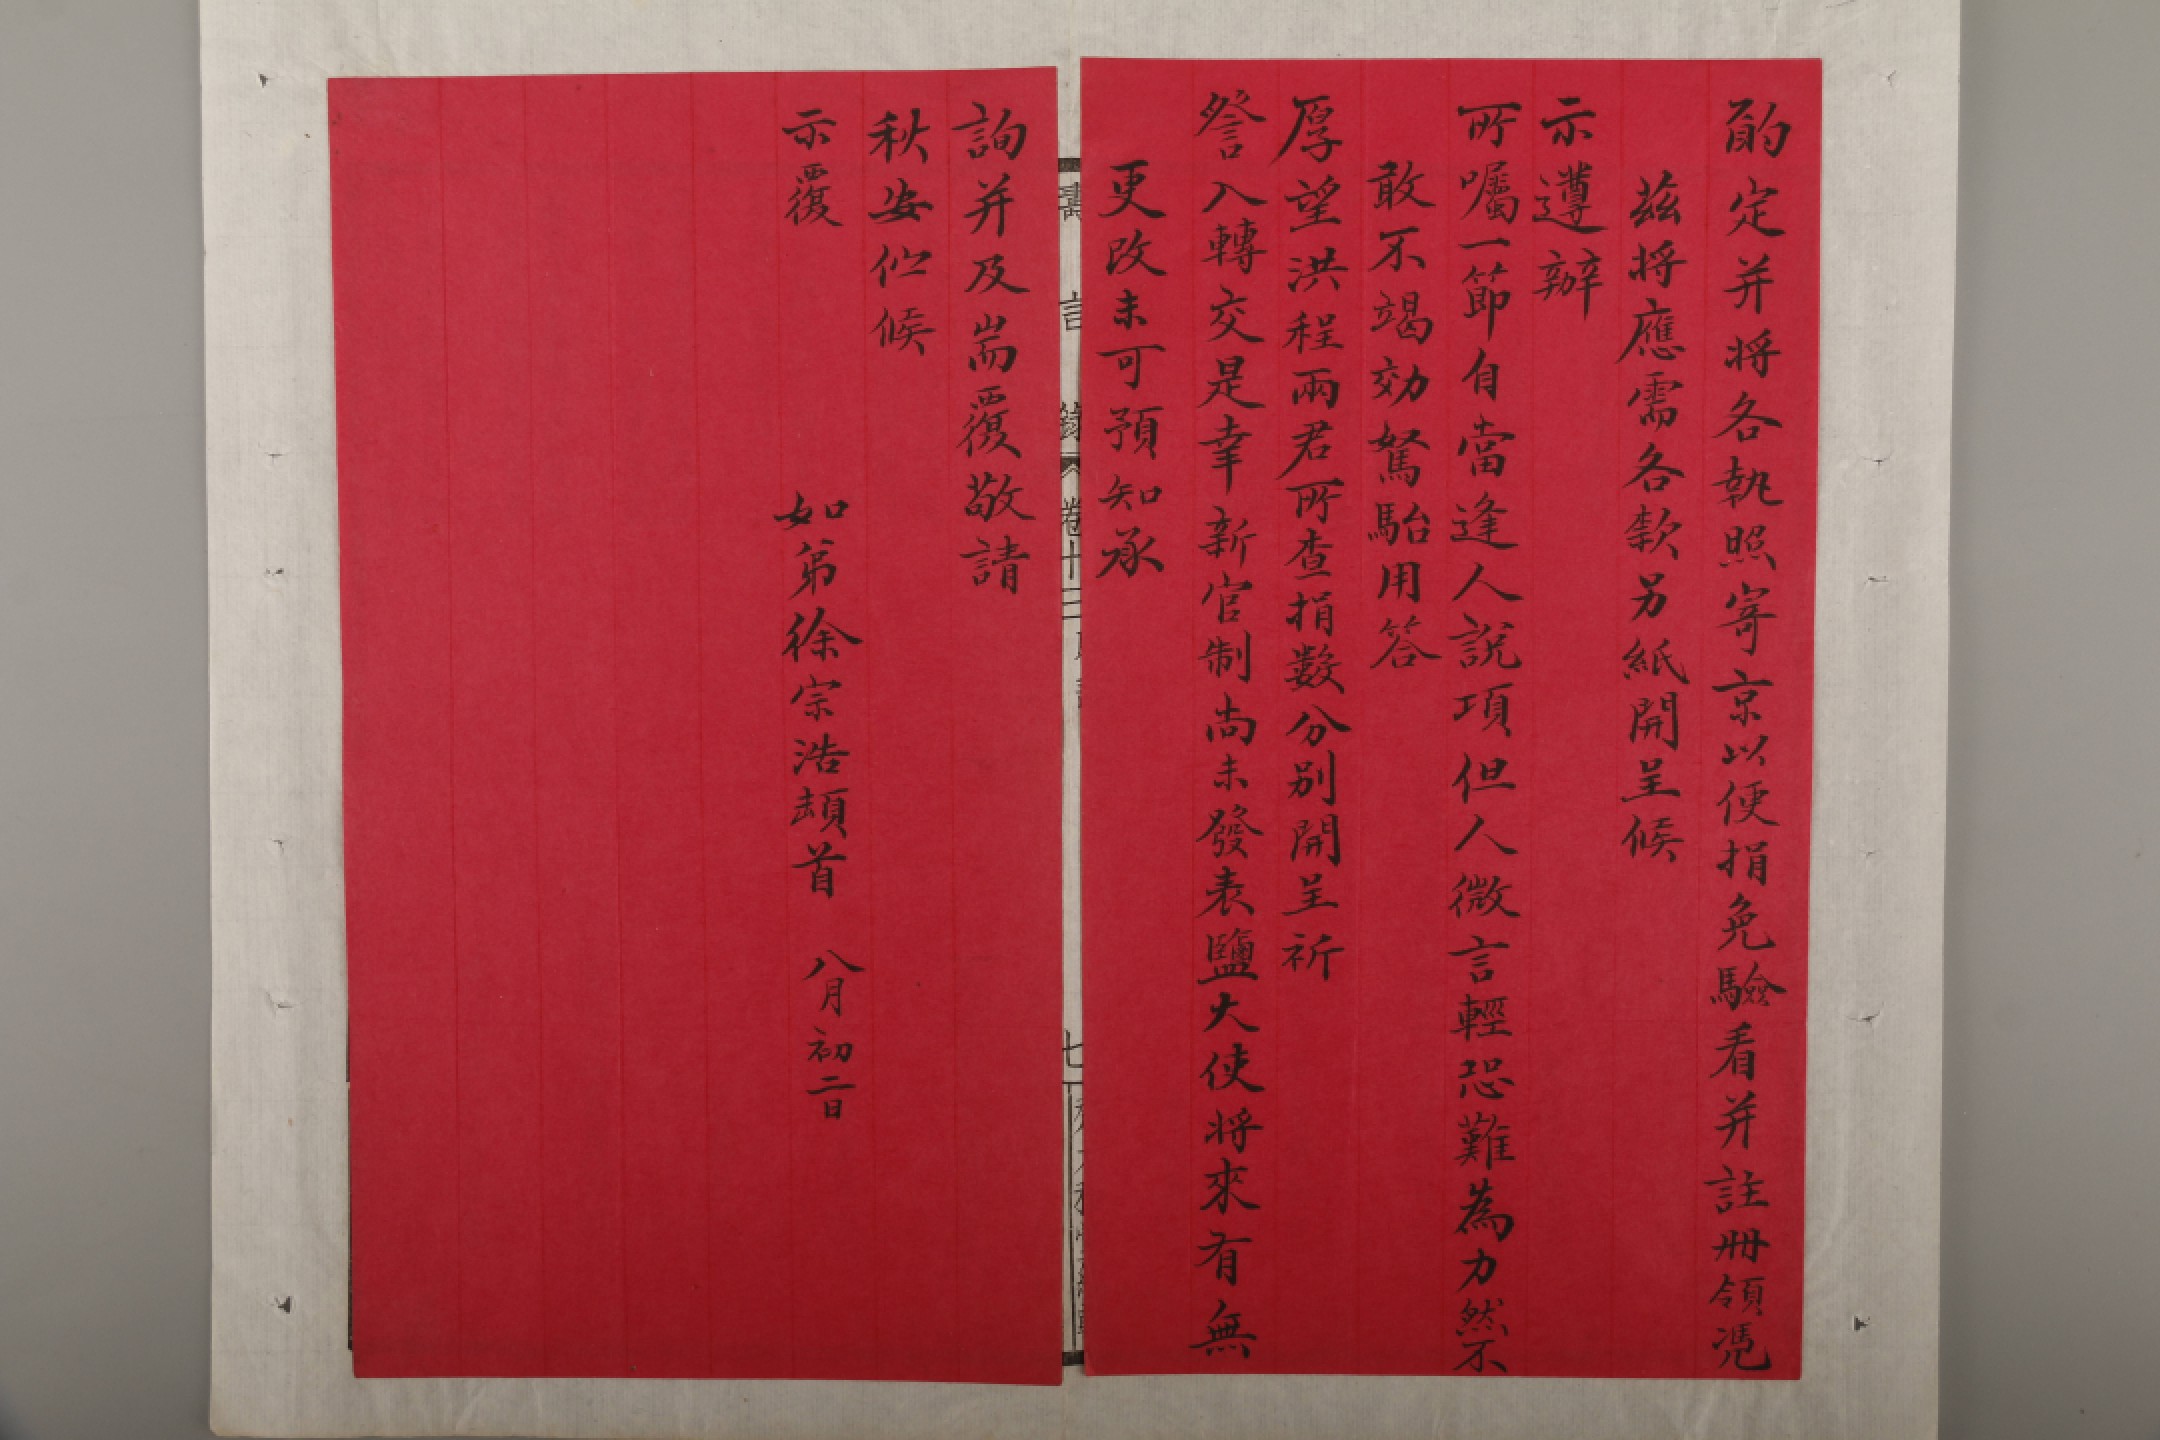 酌定并將各執照寄京以便捐免驗看并註冊領憑
茲將應需各款另紙開呈候
示遵辦
所囑一節自當逢人說項但人微言輕恐難為力然不
敢不竭効駑駘用答
厚望洪程兩君所查捐數分別開呈祈
詧入轉交是幸新官制尚未發表鹽大使將來有無
更改未可預知承
詢并及耑覆敬請
秋安伫候
示覆
如弟徐宗浩頓首 八月初二日
卷十三
七